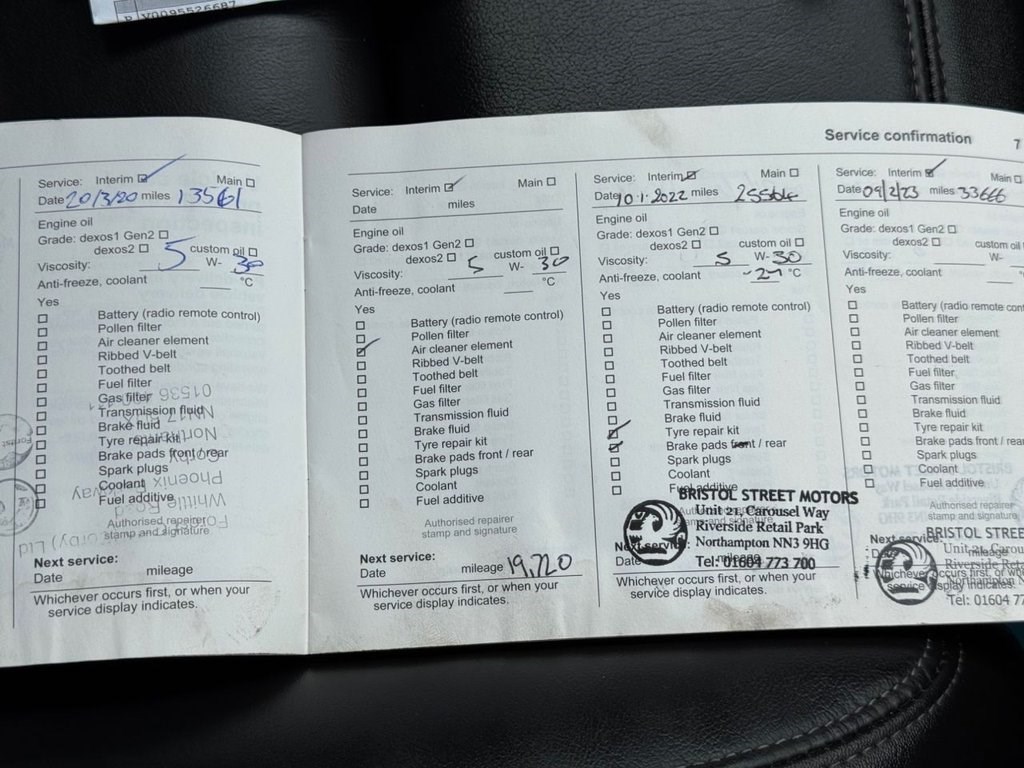 Service confirmation 7
Service: Interim Main
Date 20/3/20 miles 13561
Engine oil
Grade: dexos1 Gen2
dexos2 custom oil
Viscosity: 5 W- 30
Anti-freeze, coolant °C
Yes
Battery (radio remote control)
Pollen filter
Air cleaner element
Ribbed V-belt
Toothed belt
Fuel filter
Gas filter
Transmission fluid
Brake fluid
Tyre repair kit
Brake pads front / rear
Spark plugs
Coolant
Fuel additive
Authorised repairer
stamp and signature
Next service:
Date mileage
Whichever occurs first, or when your
service display indicates.
Service: Interim Main
Date miles
Engine oil
Grade: dexos1 Gen2
dexos2 custom oil
Viscosity: 5 W- 30
Anti-freeze, coolant °C
Yes
Battery (radio remote control)
Pollen filter
Air cleaner element
Ribbed V-belt
Toothed belt
Fuel filter
Gas filter
Transmission fluid
Brake fluid
Tyre repair kit
Brake pads front / rear
Spark plugs
Coolant
Fuel additive
Authorised repairer
stamp and signature
Next service:
Date mileage 19,720
Whichever occurs first, or when your
service display indicates.
Service: Interim Main
Date 10.1.2022 miles 25564
Engine oil
Grade: dexos1 Gen2
dexos2 custom oil
Viscosity: 5 W- 30
Anti-freeze, coolant °C
Yes
Battery (radio remote control)
Pollen filter
Air cleaner element
Ribbed V-belt
Toothed belt
Fuel filter
Gas filter
Transmission fluid
Brake fluid
Tyre repair kit
Brake pads front / rear
Spark plugs
Coolant
Fuel additive
BRISTOL STREET MOTORS
Unit 21, Carousel Way
Riverside Retail Park
Northampton NN3 9HG
Tel: 01604 773 700
Next service:
Date mileage
Whichever occurs first, or when your
service display indicates.
Service: Interim Main
Date 09/2/23 miles 33666
Engine oil
Grade: dexos1 Gen2
dexos2 custom oil
Viscosity: W-
Anti-freeze, coolant
Yes
Battery (radio remote con
Pollen filter
Air cleaner element
Ribbed V-belt
Toothed belt
Fuel filter
Gas filter
Transmission fluid
Brake fluid
Tyre repair kit
Brake pads front / rear
Spark plugs
Coolant
Fuel additive
Authorised repairer
stamp and signature
Next service:
BRISTOL STREE
Unit 21, Carou
Riverside Reta
Northampton N
Tel: 01604 77